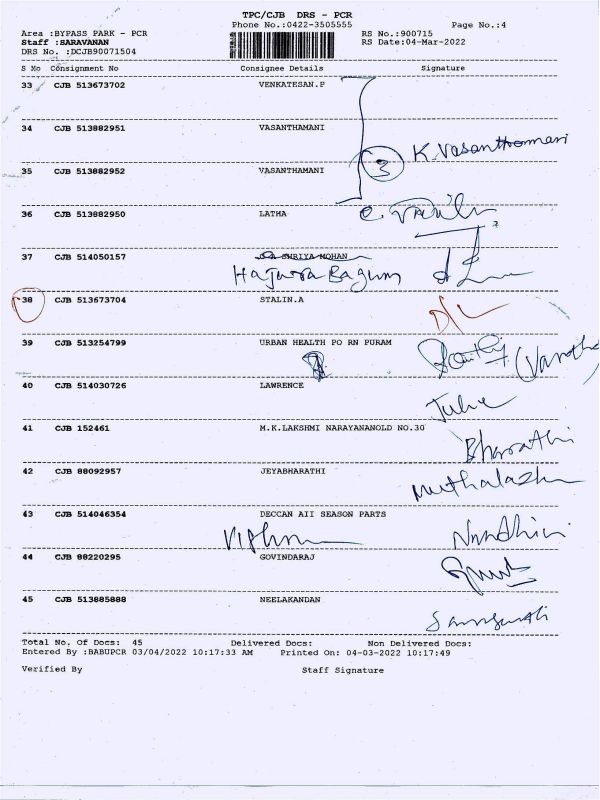 TPC/CJB DRS - PCR
Phone No.:0422-3505555 Page No.:4
Area :BYPASS PARK - PCR RS No.:900715
Staff :SARAVANAN RS Date:04-Mar-2022
DRS No. :DCJB90071504
S No Consignment No Consignee Details Signature
33 CJB 513673702 VENKATESAN.P
34 CJB 513882951 VASANTHAMANI
3 K.Vasanthamani
35 CJB 513882952 VASANTHAMANI
36 CJB 513882950 LATHA
37 CJB 514050157 SURIYA MOHAN
Hajura Bagum
38 CJB 513673704 STALIN.A
D/L
39 CJB 513254799 URBAN HEALTH PO RN PURAM
40 CJB 514030726 LAWRENCE
Julie
41 CJB 152461 M.K.LAKSHMI NARAYANANOLD NO.30
Bharathi
42 CJB 88092957 JEYABHARATHI
Muthalazhu
43 CJB 514046354 DECCAN AII SEASON PARTS
Nandhini
44 CJB 88220295 GOVINDARAJ
45 CJB 513885888 NEELAKANDAN
Total No. Of Docs: 45 Delivered Docs: Non Delivered Docs:
Entered By :BABUPCR 03/04/2022 10:17:33 AM Printed On: 04-03-2022 10:17:49
Verified By Staff Signature